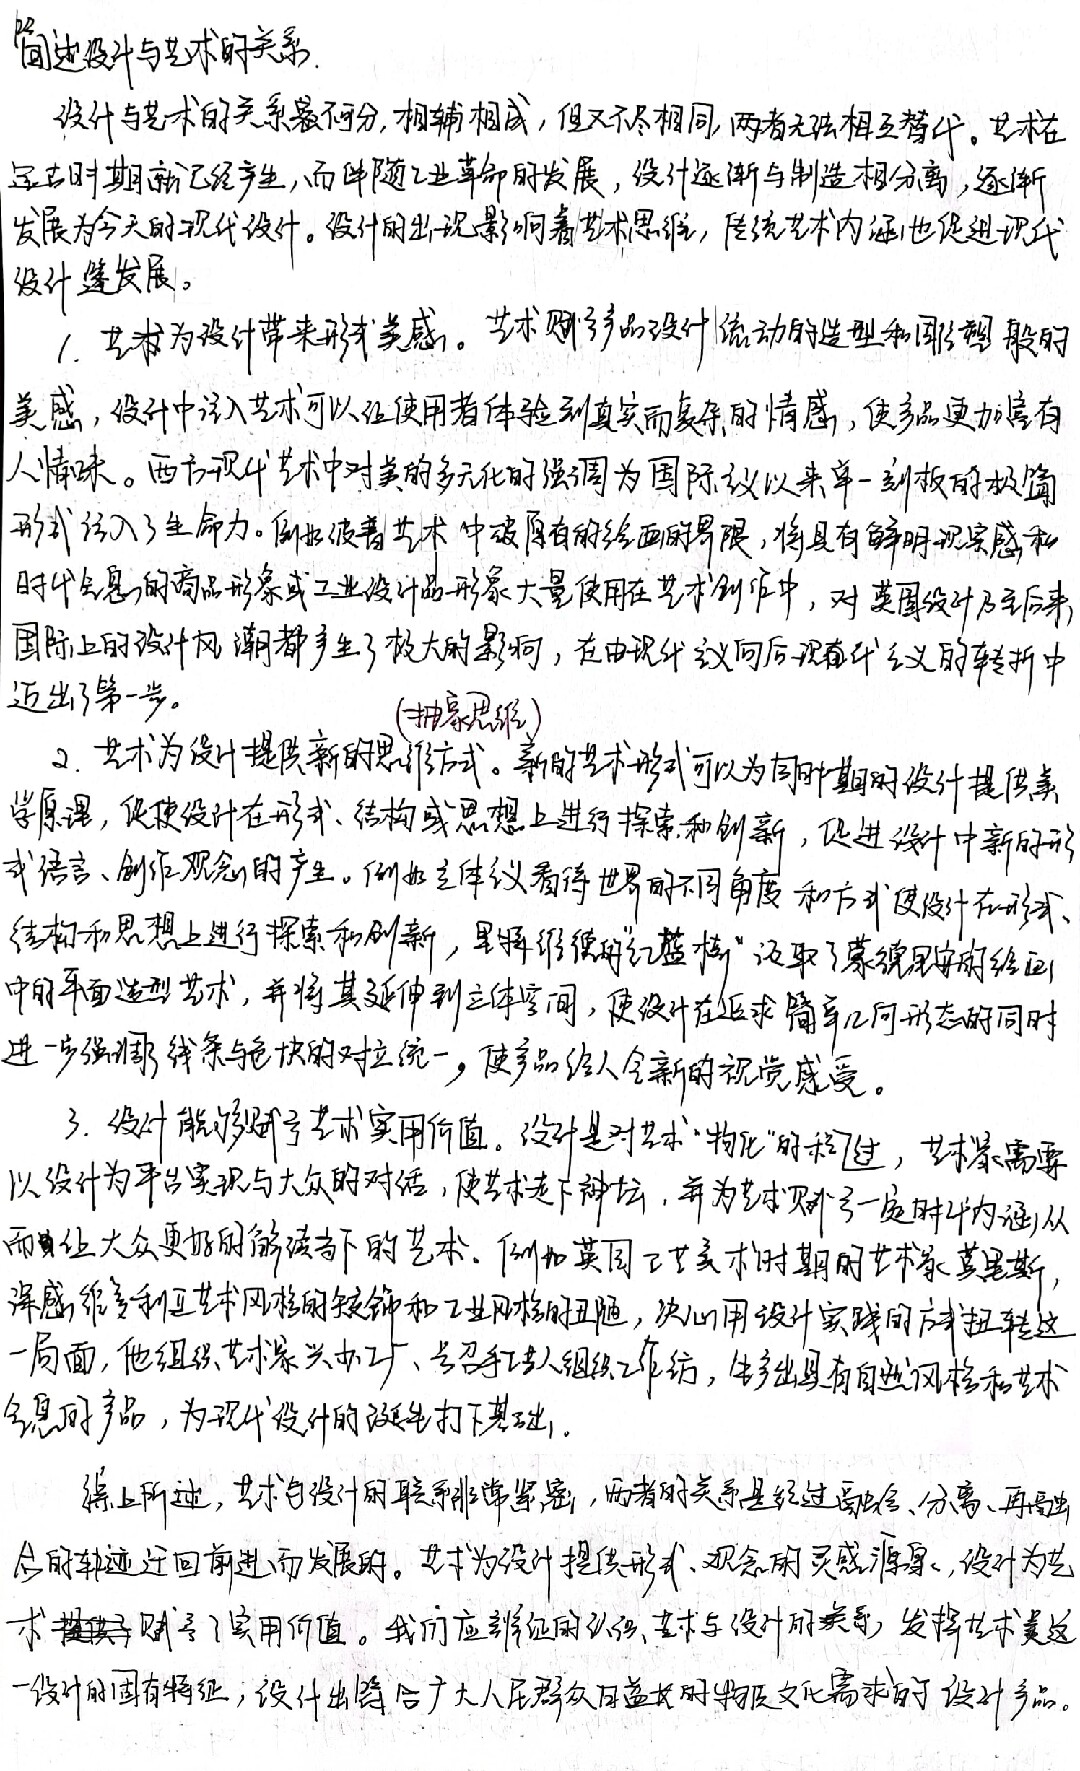 简述设计与艺术的关系.
设计与艺术的关系密不可分,相辅相成,但又不尽相同,两者无法相互替代。艺术在
远古时期就已经产生,而伴随工业革命的发展,设计逐渐与制造相分离,逐渐
发展为今天的现代设计。设计的出现影响着艺术思维,传统艺术内涵也促进现代
设计蓬发展。
1. 艺术为设计带来形式美感。艺术赋予产品设计流动的造型和雕塑般的
美感,设计中注入艺术可以让使用者体验到真实而复杂的情感,使产品更加富有
人情味。西方现代艺术中对美的多元化的强调为国际主义以来单一刻板的极简
形式注入了生命力。例如波普艺术中破原有的绘画的界限,将具有鲜明现实感和
时代气息的商品形象或工业设计品形象大量使用在艺术创作中,对英国设计乃至后来
国际上的设计风潮都产生了极大的影响,在由现代主义向后现代主义的转折中
迈出了第一步。
(抽象思维)
2. 艺术为设计提供新的思维方式。新的艺术形式可以为同时期的设计提供美
学原理,促使设计在形式、结构或思想上进行探索和创新,促进设计中新的形
式语言、创作观念的产生。例如立体主义看待世界的不同角度和方式使设计在形式、
结构和思想上进行探索和创新,里特维德的“红蓝椅”汲取了蒙德里安的绘画
中的平面造型艺术,并将其延伸到立体空间,使设计在追求简单几何形态的同时
进一步强调了线条与色块的对立统一,使产品给人全新的视觉感受。
3. 设计能够赋予艺术实用价值。设计是对艺术“物化”的过程,艺术家需要
以设计为平台实现与大众的对话,使艺术走下神坛,并为艺术赋予一定时代内涵,从
而让大众更好的解读当下的艺术。例如英国工艺美术时期的艺术家莫里斯,
深感维多利亚艺术风格的矫饰和工业风格的丑陋,决心用设计实践的方式扭转这
一局面,他组织艺术家兴办工厂、号召手工艺人组织工作坊,生产出具有自然风格和艺术
气息的产品,为现代设计的诞生打下基础。
综上所述,艺术与设计的联系非常紧密,两者的关系是经过融合、分离、再融
合的轨迹迂回前进而发展的。艺术为设计提供形式、观念的灵感源泉,设计为艺
术赋予了实用价值。我们应辩证的认识艺术与设计的关系,发挥艺术美这
一设计的固有特征,设计出符合广大人民群众日益长的物质文化需求的设计产品。